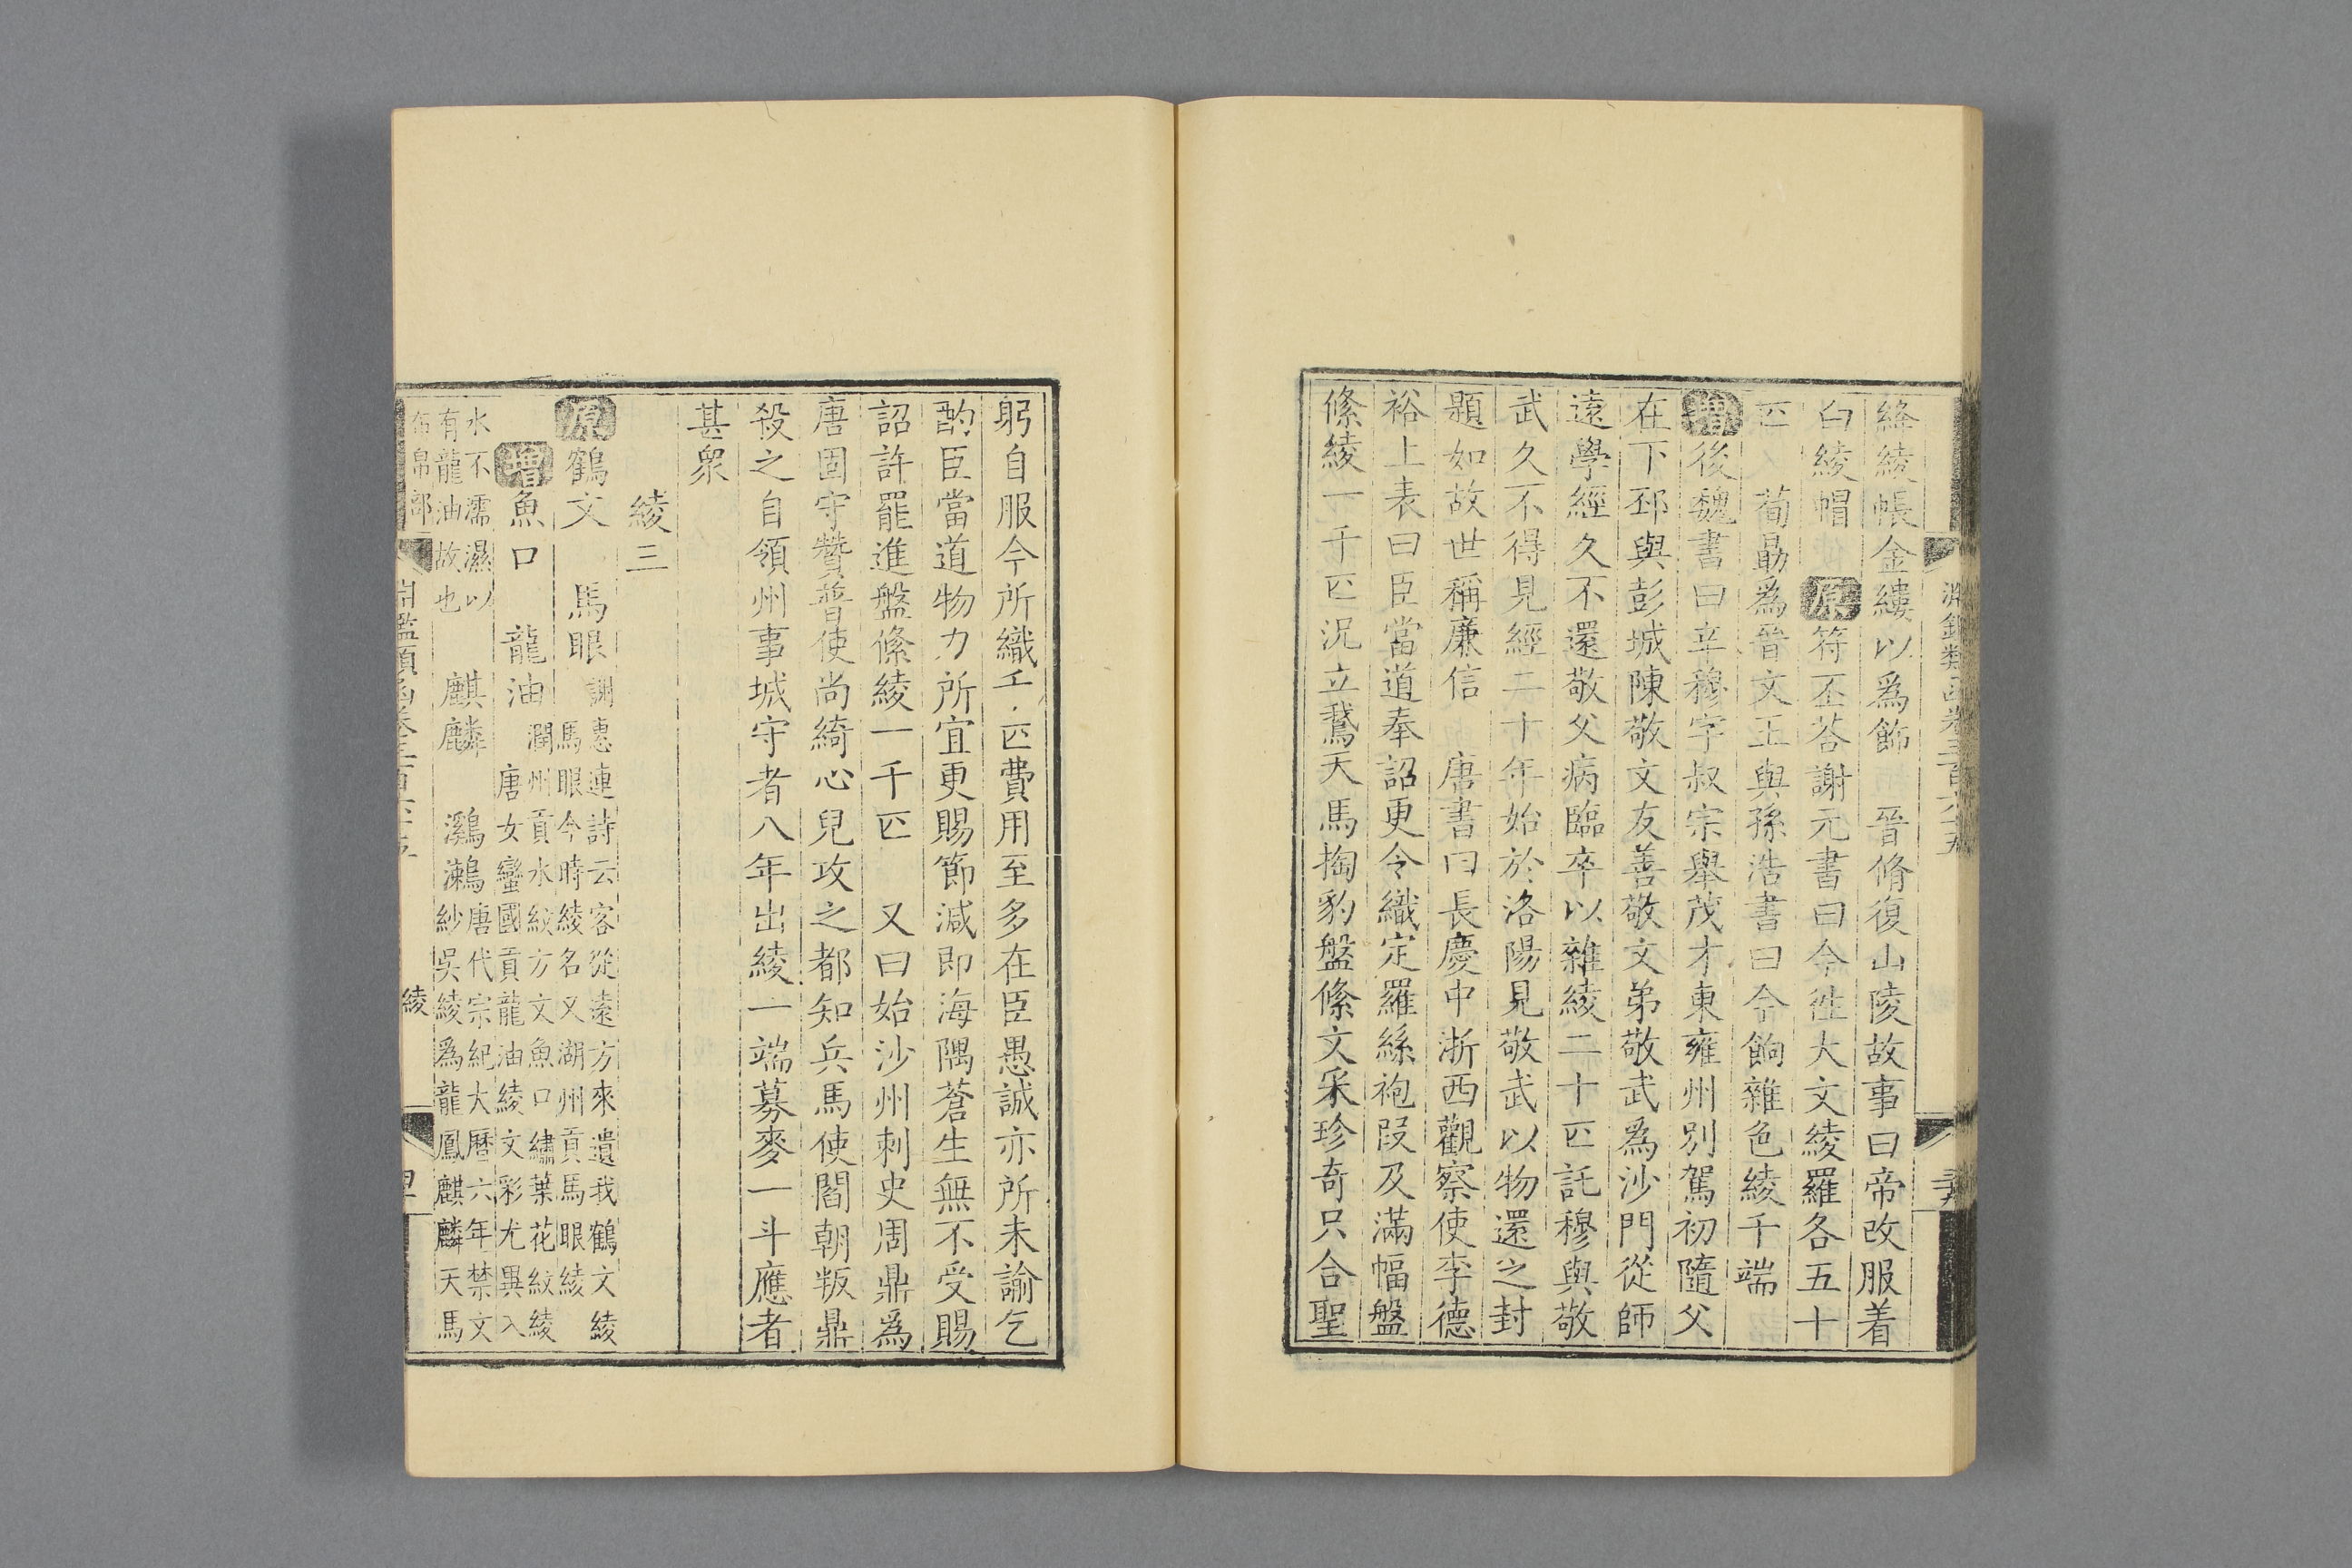 絳綾帳金縷以爲飾　晉脩復山陵故事曰帝改服着
白綾帽　原符丕荅謝元書曰今徃大文綾羅各五十
匹　荀勗爲晉文王與孫浩書曰今餉雜色綾千端
增後魏書曰辛穆字叔宗舉茂才東雍州別駕初隨父
在下邳與彭城陳敬文友善敬文弟敬武爲沙門從師
遠學經久不還敬父病臨卒以雜綾二十匹託穆與敬
武久不得見經二十年始於洛陽見敬武以物還之封
題如故世稱廉信　唐書曰長慶中浙西觀察使李德
裕上表曰臣當道奉詔更令織定羅絲袍段及滿幅盤
絛綾一千匹況立鵞天馬掏豹盤絛文采珍奇只合聖
躬自服今所織千匹費用至多在臣愚誠亦所未諭乞
酌臣當道物力所宜更賜節減即海隅蒼生無不受賜
詔許罷進盤絛綾一千匹　又曰始沙州刺史周鼎爲
唐固守贊普使尚綺心兒攻之都知兵馬使閻朝叛鼎
殺之自領州事城守者八年出綾一端募麥一斗應者
甚衆
綾三
原鶴文　馬眼謝惠連詩云客從遠方來遺我鶴文綾
馬眼今時綾名又湖州貢馬眼綾
增魚口　龍油潤州貢水紋方文魚口繡葉花紋綾
唐女蠻國貢龍油綾文彩尤異入
水不濡濕以
有龍油故也　麒麟　鸂鶒唐代宗紀大曆六年禁文
紗吳綾爲龍鳳麒麟天馬
布帛部
綾